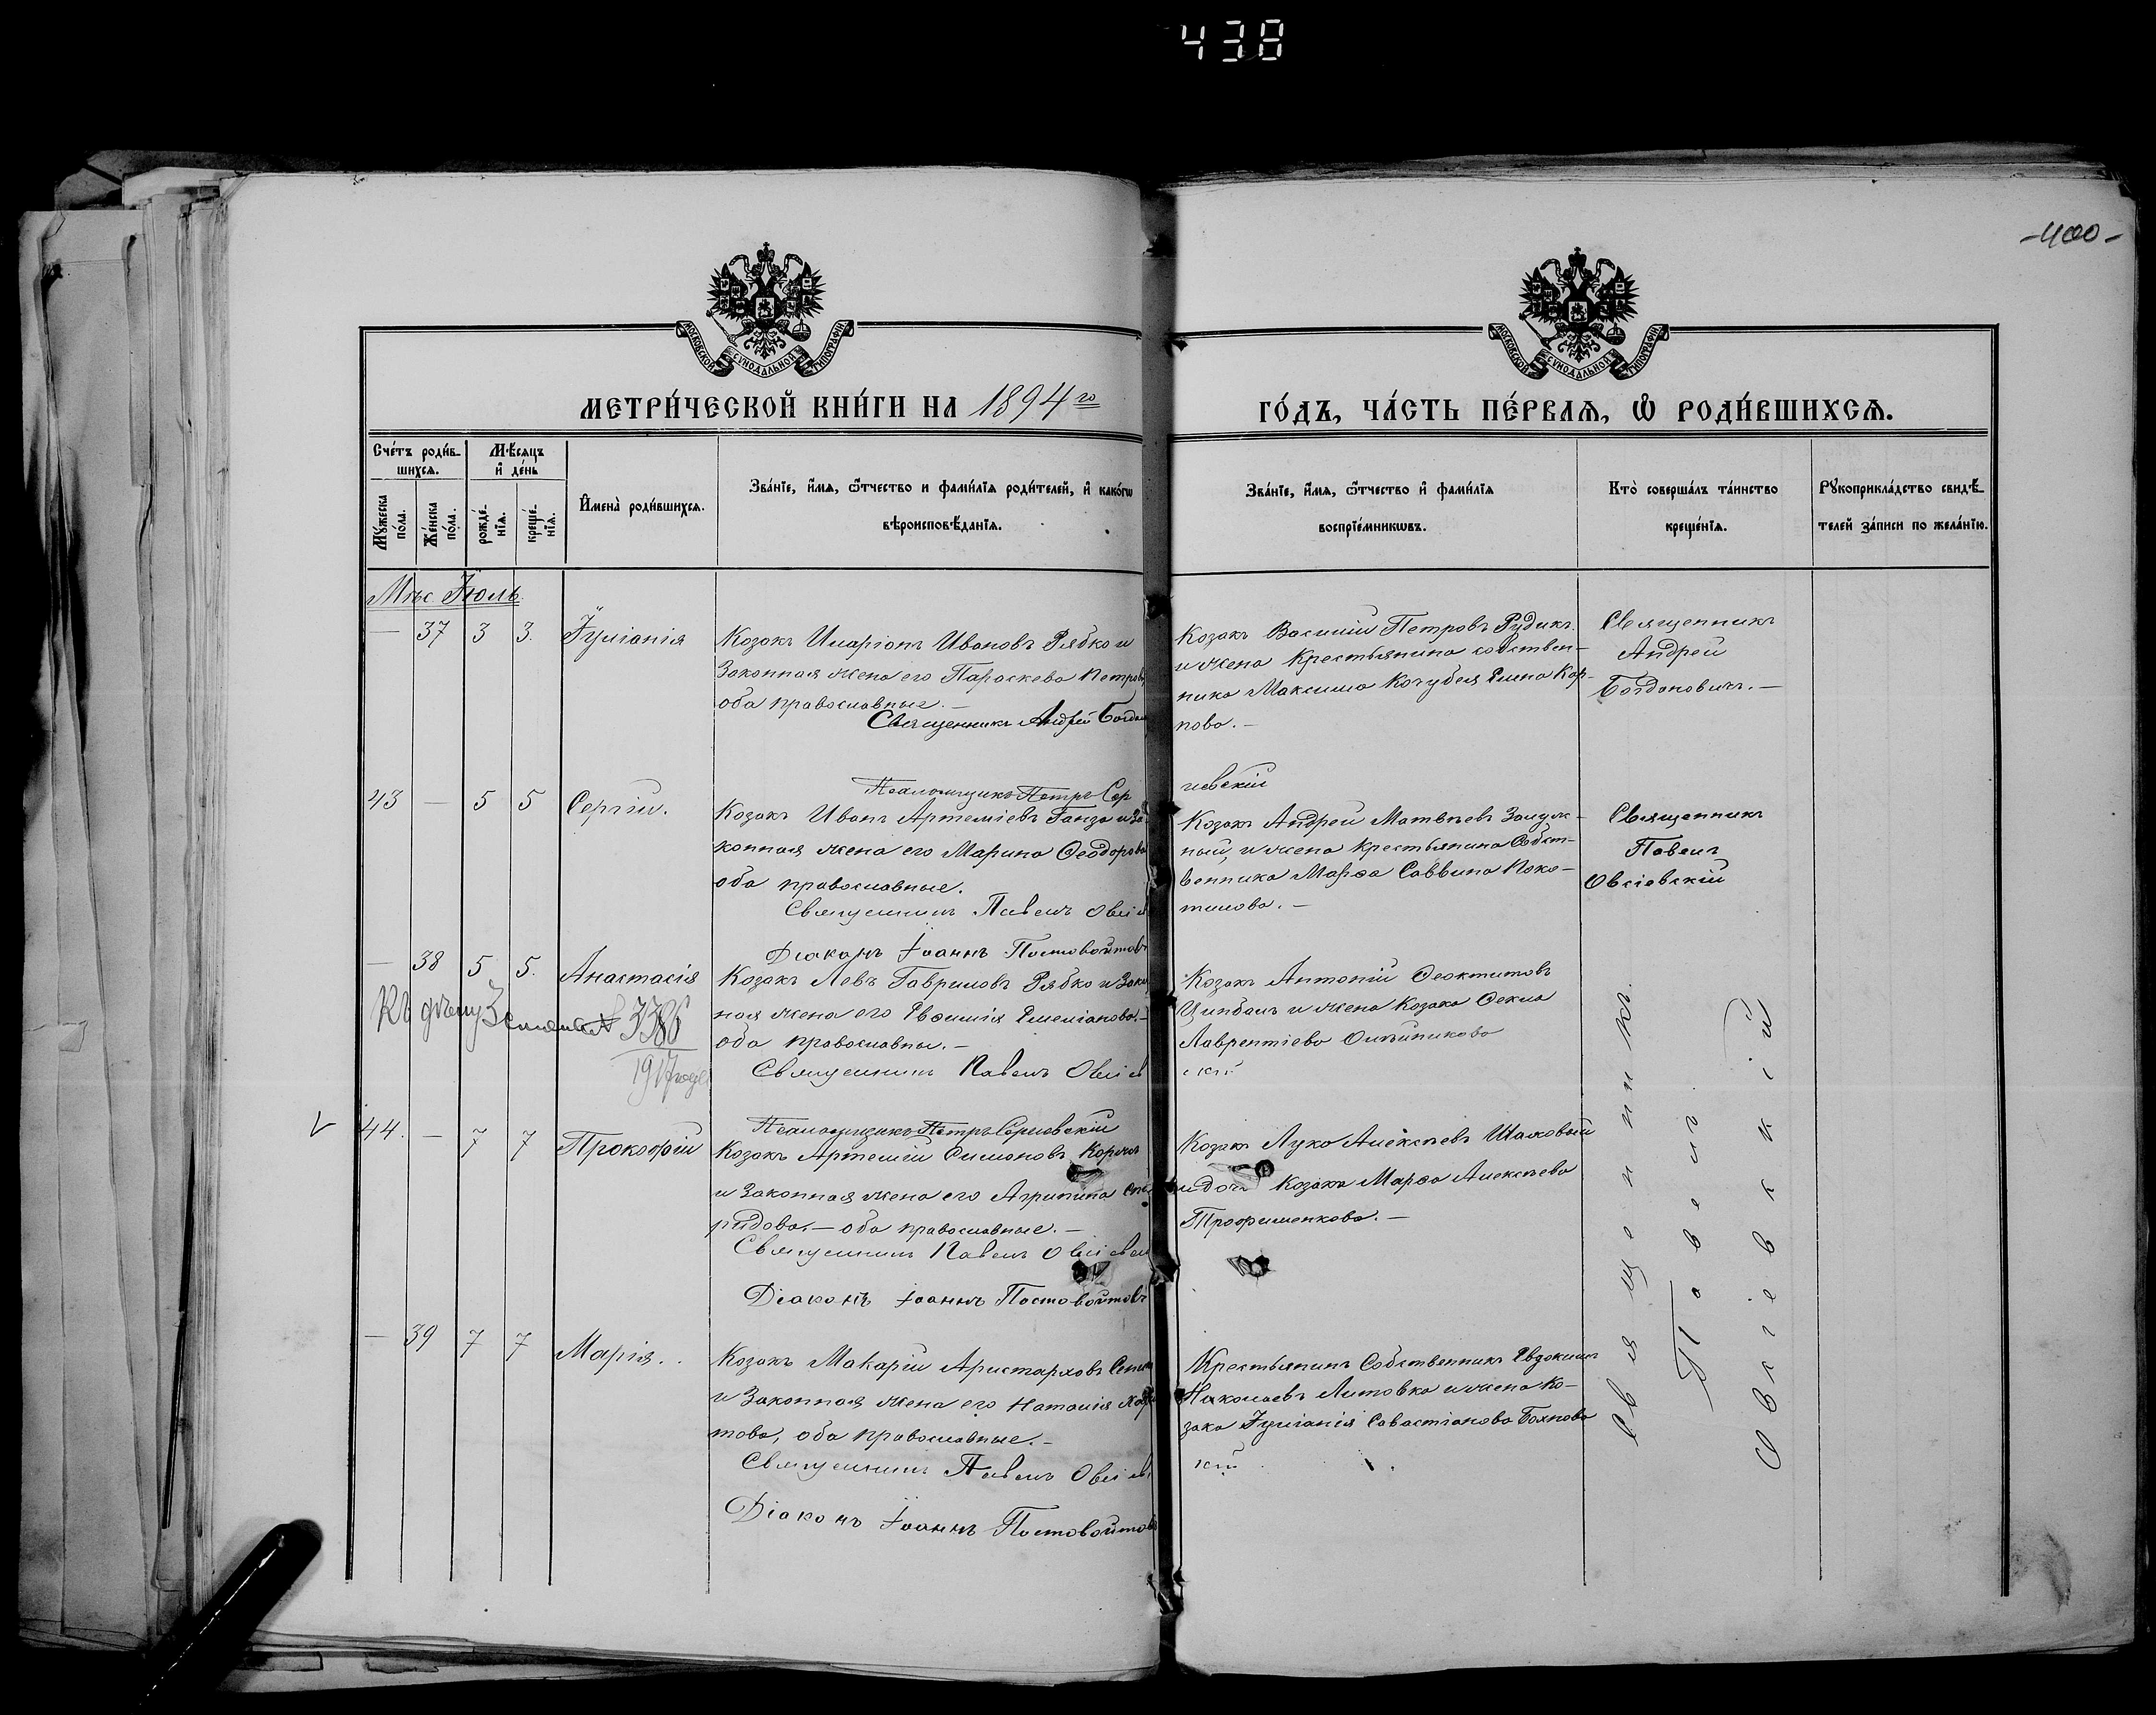 438
-400-
МОСКОВСКОЙ СѴНОДАЛЬНОЙ ТИПОГРАФІИ
МОСКОВСКОЙ СѴНОДАЛЬНОЙ ТИПОГРАФІИ
МЕТРИ́ЧЕСКОЙ КНИ́ГИ НА 1894го
ГО́ДЪ, ЧА́СТЬ ПЕ́РВАѦ, Ѡ҆ РОДИ́ВШИХСѦ.
Сче́тъ роди́в-
шихсѧ.
Мѣ́сѧцъ
и҆ де́нь
Мꙋ́жеска
по́ла.
Же́нска
по́ла.
рожде́-
нїѧ.
креще́-
нїѧ.
И҆мена̀ роди́вшихсѧ.
Зва́нїе, и҆́мѧ, ѿчество и фами́лїѧ роди́телей, и҆ како́гѡ
вѣроисповѣ́данїѧ.
Зва́нїе, и҆́мѧ, ѿчество и҆ фами́лїѧ
воспрїе́мникѡвъ.
Кто̀ соверша́лъ та́инство
креще́нїѧ.
Рꙋкоприкла́дство свидѣ́-
телей за́писи по жела́нїю.
Мѣс. Іюль.
— 37 3 3. Іуліанія
Козакъ Иларіонъ Ивановъ Рябко и
Законная жена его Параскева Петров
оба православные. —
Священникъ Андрей Богдан
Козакъ Василій Петровъ Рудикъ
и жена Крестьянина собствен-
ника Максима Кочубея Елена Кар-
пова. —
Священникъ
Андрей
Богдановичъ. —
43 — 5 5 Сергій.
Псаломщикъ Петръ Сер
гіевскій
Козакъ Иванъ Артеміевъ Ганза и За
конная жена его Марина Ѳеодорова
оба православные.
Священникъ Павелъ Овсіев
Діаконъ Іоаннъ Постовойтовъ
Козакъ Андрей Матвѣевъ
ный, и жена крестьянина Собст-
венника Марѳа Саввина Поко-
тилова. —
Священникъ
Павелъ
Овсіевскій
— 38 5 5. Анастасія
Козакъ Левъ Гавриловъ Рябко и Закон
ная жена его Евѳимія Емеліанова. —
оба православны. —
Священникъ Павелъ Овсіев
скій
Козакъ Антоній Ѳеоктитовъ
Цимбалъ и жена Козака Ѳекла
Лаврентіева Олѣйникова
Къ дѣлу № 3386
1917 года
V 44. — 7 7 Прокофій
Псаломщикъ Петръ Сергіевскій
Козакъ Артемій Симоновъ
и Законная жена его Агрипина Спи
ридова. — оба православные. —
Священникъ Павелъ Овсіевск
Діаконъ Іоаннъ Постовойтовъ
Козакъ Лука Алексѣевъ Шаповый
и дочь Козака Марѳа Алексѣева
Трофименкова. —
— 39 7 7 Марія. .
Козакъ Макарій Аристарховъ
и Законная жена его Наталія
това, оба православные. —
Священникъ Павелъ Овсіевс
кій
Діаконъ Іоаннъ Постовойтовъ
Крестьянинъ Собственникъ Евдокимъ
Николаевъ Литовка и жена Ко-
зака Іуліанія Савастіанова Бахнова
Священникъ
Павелъ
Овсіевскій